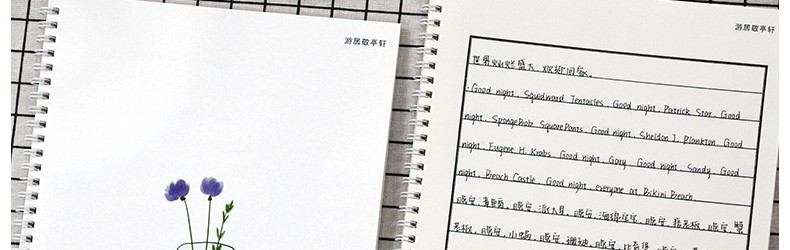 游居敬亭轩
游居敬亭轩
世界灿烂盛大，欢迎回家。
Good night, Squidward Tentacles, Good night, Patrick Star, Good
night, SpongeBob SquarePants, Good night, Sheldon J. Plankton, Good
night, Eugene H. Krabs, Good night, Gary, Good night, Sandy, Good
night, Breach Castle, Good night, everyone at Bikini Breach
晚安，章鱼哥，晚安，派大星，晚安，海绵宝宝，晚安，痞老板，晚安，蟹
老板，晚安，小蜗，晚安，珊迪，晚安，比奇堡，晚安